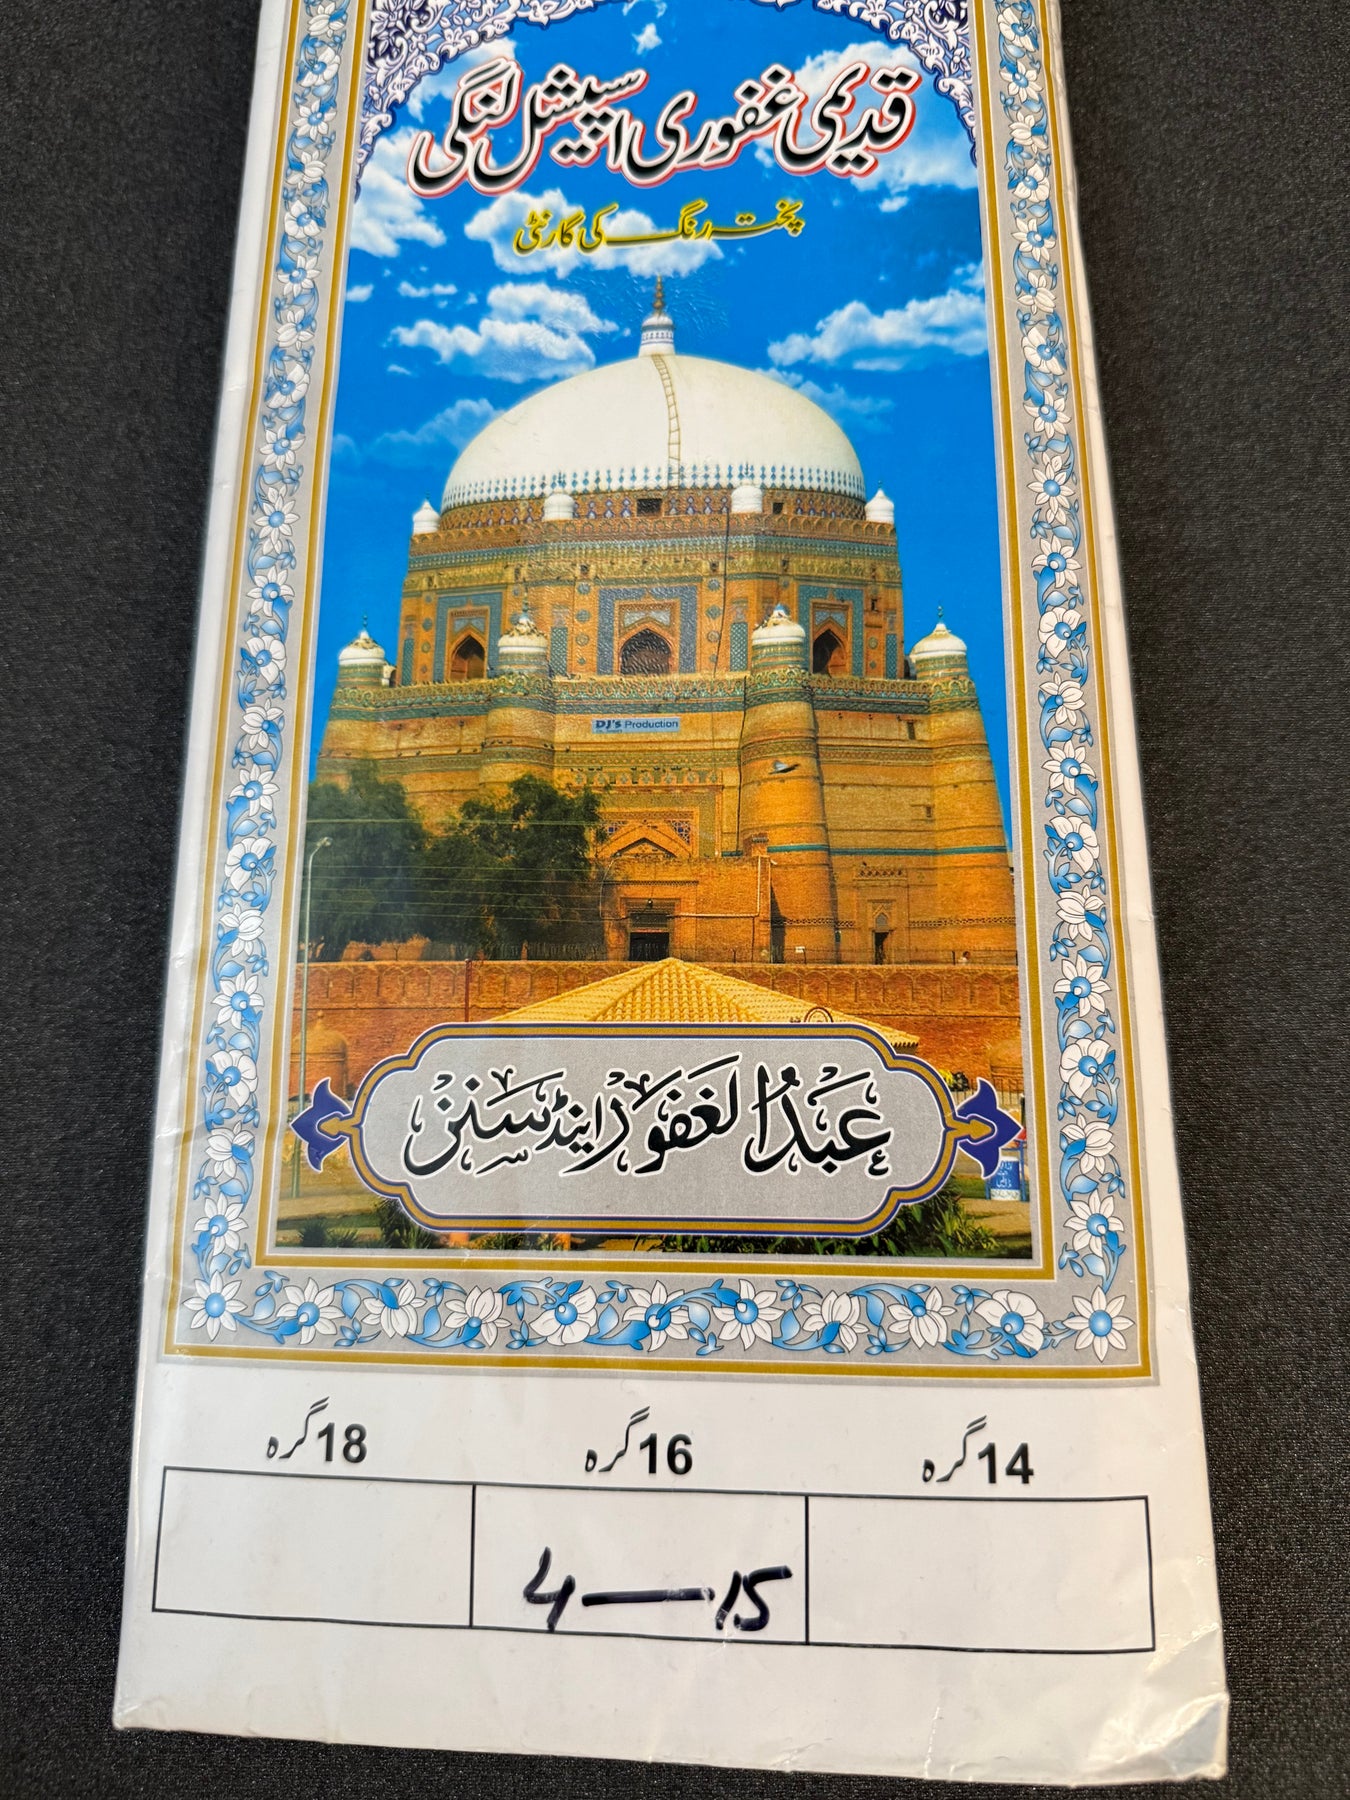 قدیمی غفوری اسپیشل لنگی
پختہ رنگ کی گارنٹی
DJ's Production
عبدالغفور اینڈ سنز
14 گرہ 16 گرہ 18 گرہ
4—15